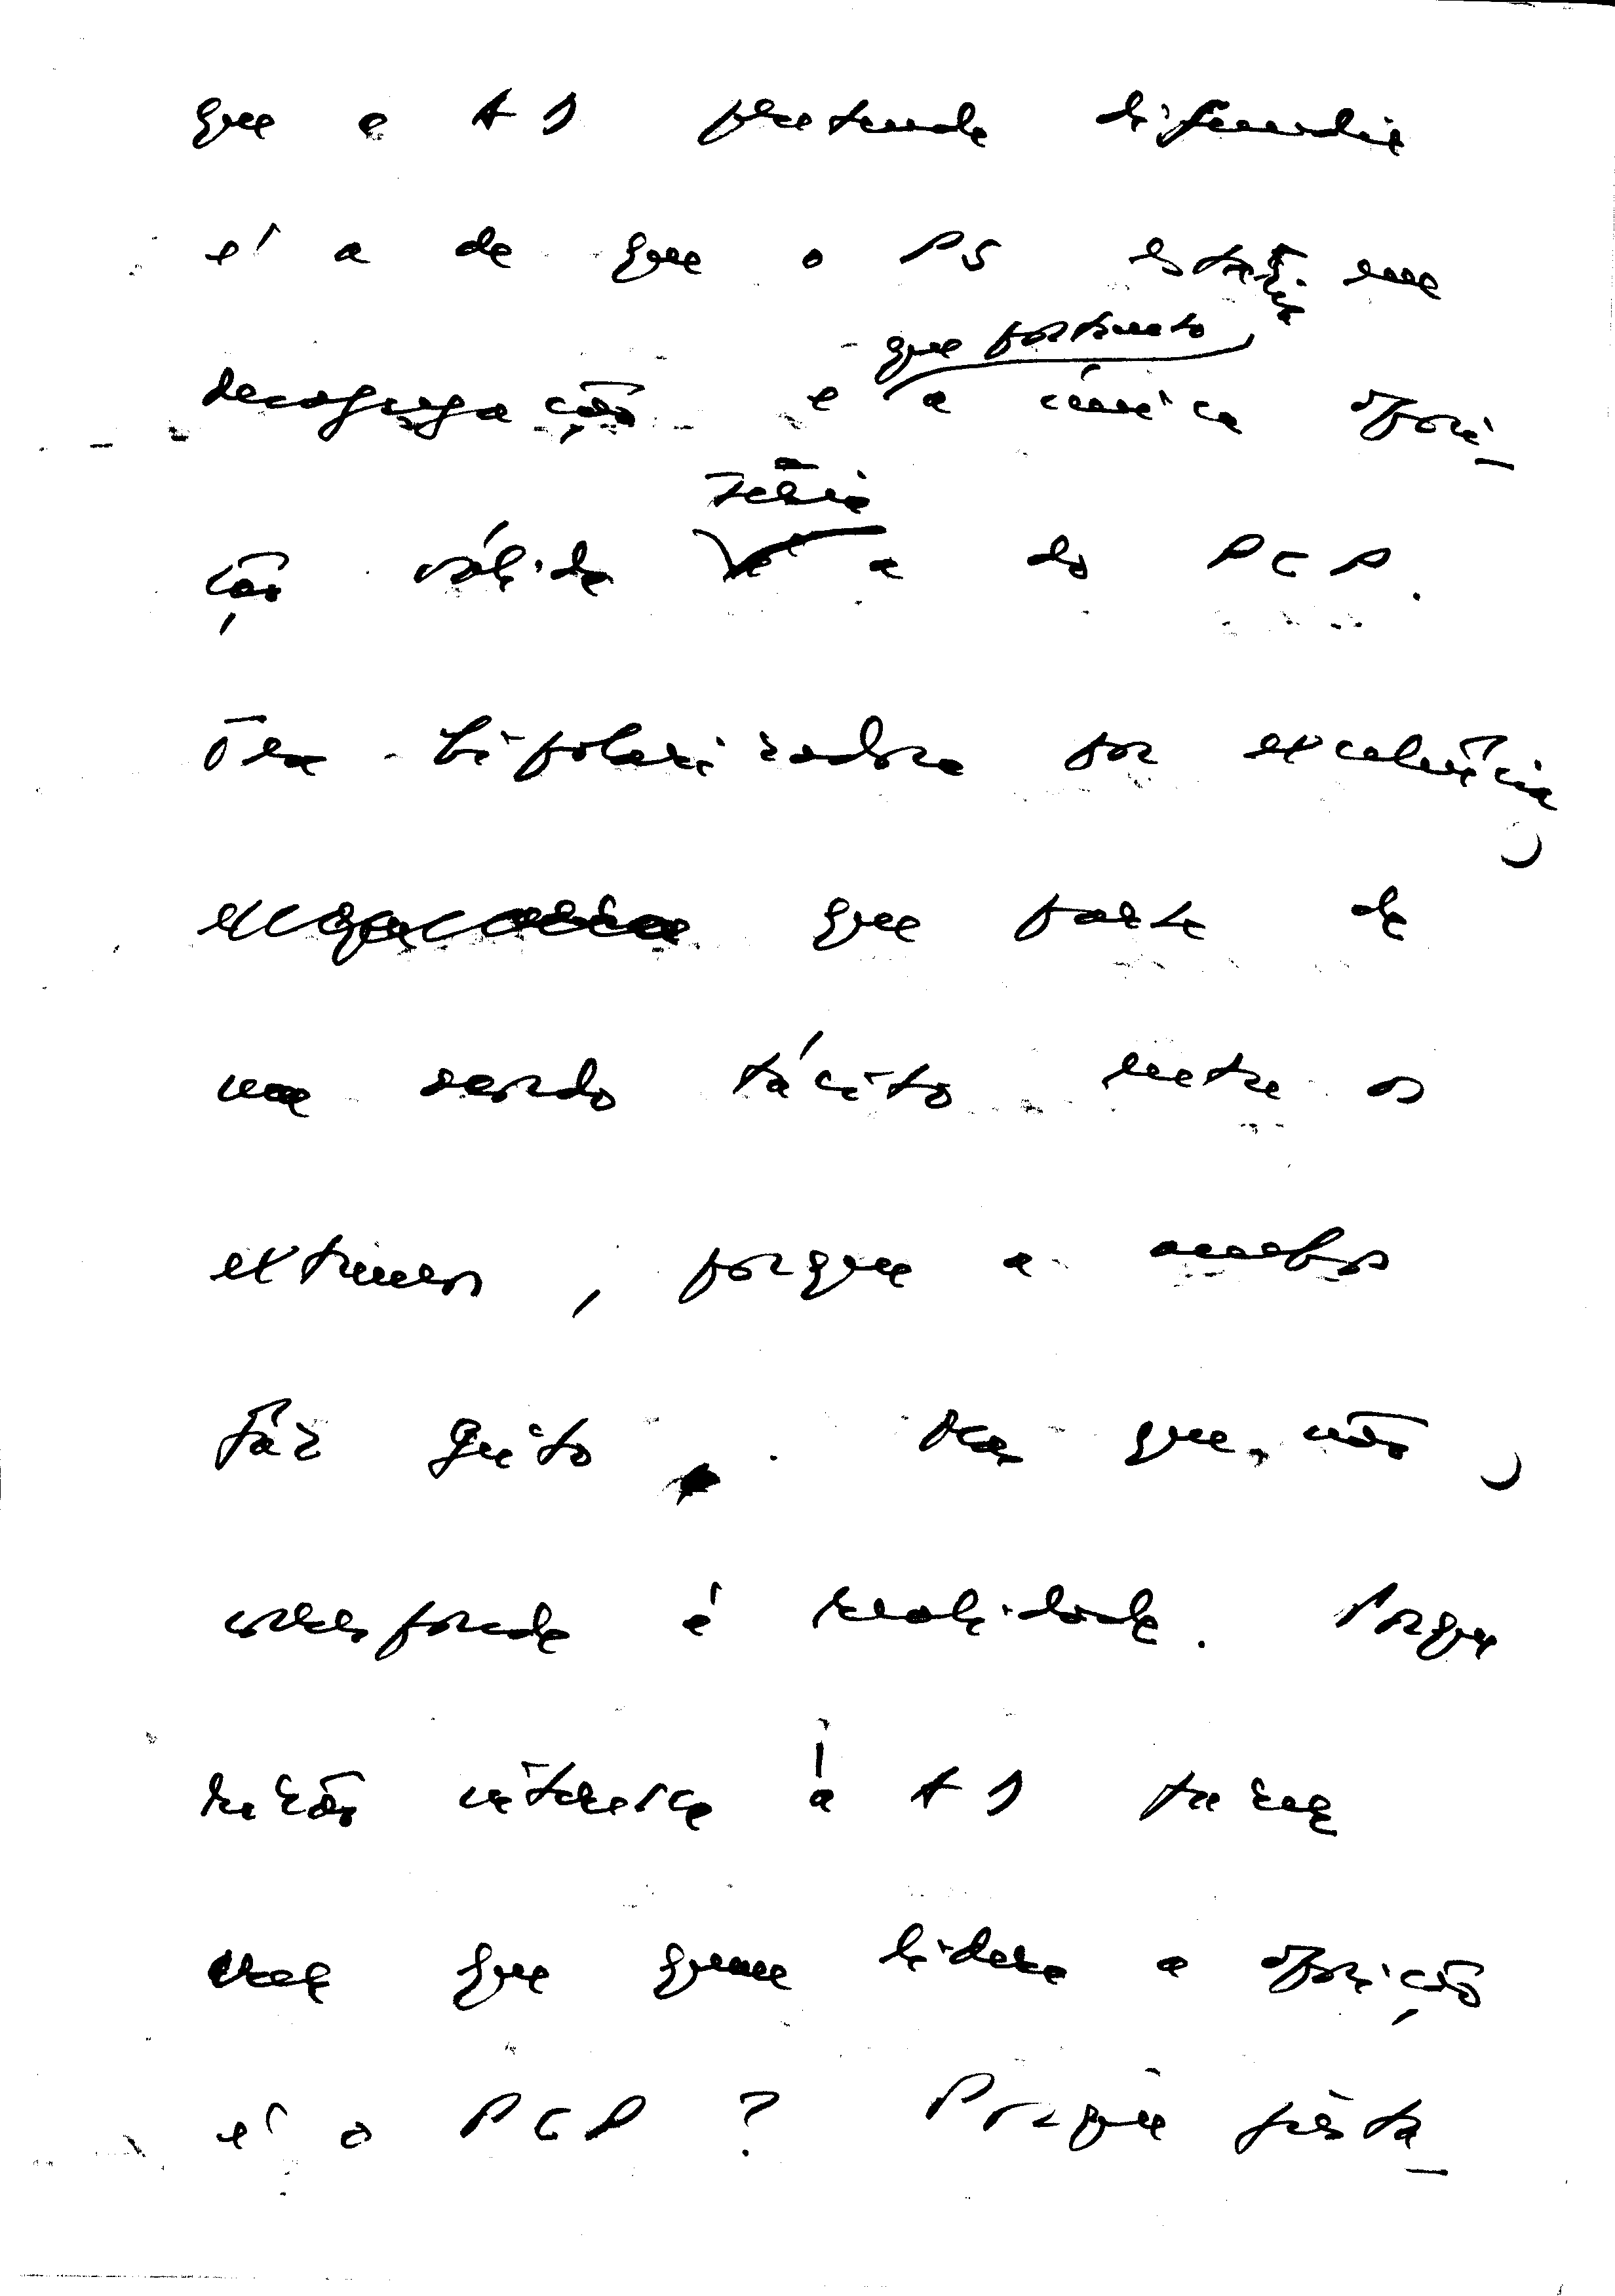 que a AD pretende difundir
é a de que o PS estaria em
desagregação e que portanto a única oposi-
ção válida seria a do PCP.
Tese bipolarizadora por excelência,
que parte de
um acordo tácito entre os
extremos, porque a ambos
faz jeito. Mas que, não,
corresponde à realidade. Porque
razão interessa à AD fazer
crer que quem lidera a oposição
é o PCP? Porque justa-